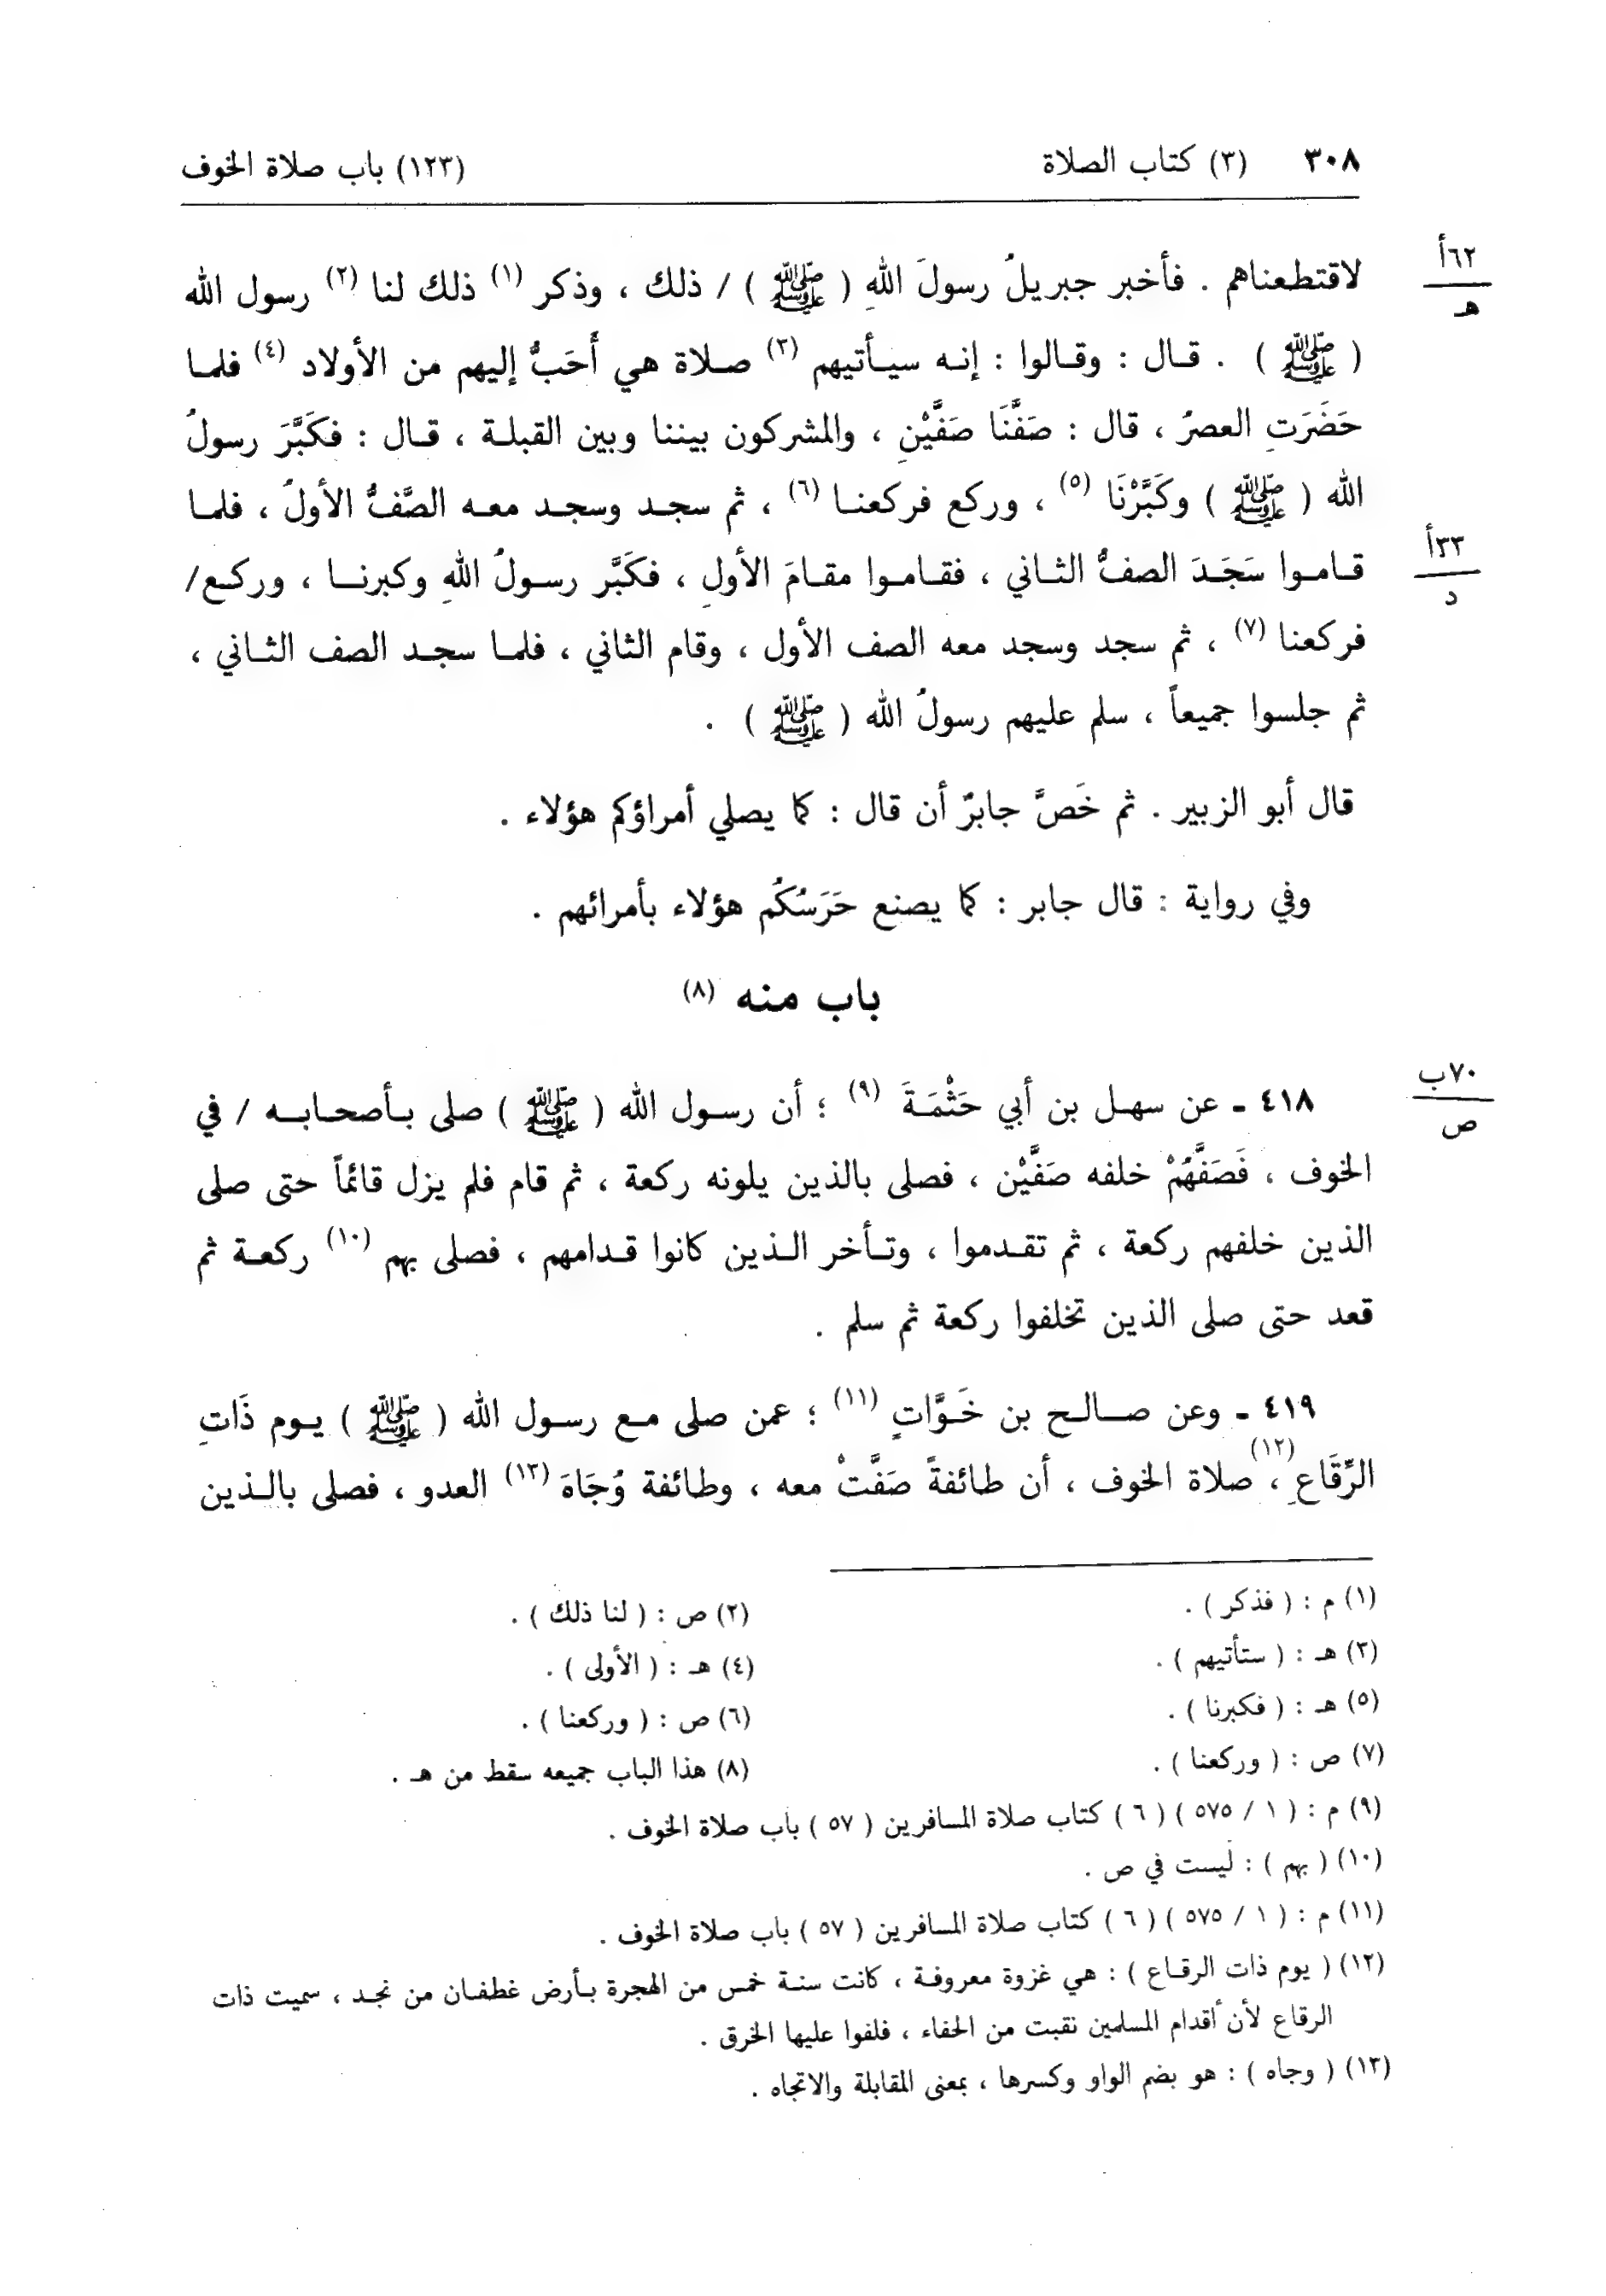 ٣٠٨ (٣) كتاب الصلاة (١٢٣) باب صلاة الخوف
لاقتطعناهم . فأخبر جبريلُ رسولَ اللهِ ( ﷺ ) / ذلك ، وذكر (١) ذلك لنا (٢) رسول الله
٦٢أ
هـ
( ﷺ ) . قال : وقالوا : إنه سيأتيهم (٣) صلاة هي أَحَبُّ إليهم من الأولاد (٤) فلما
حَضَرَتِ العصرُ ، قال : صَفَّنَا صَفَّيْنِ ، والمشركون بيننا وبين القبلة ، قال : فكَبَّرَ رسولُ
الله ( ﷺ ) وكَبَّرْنَا (٥) ، وركع فركعنا (٦) ، ثم سجد وسجد معه الصَّفُّ الأولُ ، فلما
قاموا سَجَدَ الصفُّ الثاني ، فقاموا مقامَ الأولِ ، فكَبَّر رسولُ اللهِ وكبرنا ، وركع/
٣٣أ
د
فركعنا (٧) ، ثم سجد وسجد معه الصف الأول ، وقام الثاني ، فلما سجد الصف الثاني ،
ثم جلسوا جميعاً ، سلم عليهم رسولُ الله ( ﷺ ) .
قال أبو الزبير . ثم خَصَّ جابرٌ أن قال : كما يصلي أمراؤكم هؤلاء .
وفي رواية : قال جابر : كما يصنع حَرَسُكُم هؤلاء بأمرائهم .
باب منه (٨)
٤١٨ ـ عن سهل بن أبي حَثْمَةَ (٩) ؛ أن رسول الله ( ﷺ ) صلى بأصحابه / في
٧٠ب
ص
الخوف ، فَصَفَّهُمْ خلفه صَفَّيْن ، فصلى بالذين يلونه ركعة ، ثم قام فلم يزل قائماً حتى صلى
الذين خلفهم ركعة ، ثم تقدموا ، وتأخر الذين كانوا قدامهم ، فصلى بهم (١٠) ركعة ثم
قعد حتى صلى الذين تخلفوا ركعة ثم سلم .
٤١٩ ـ وعن صالح بن خَوَّاتٍ (١١) ؛ عمن صلى مع رسول الله ( ﷺ ) يوم ذَاتِ
الرِّقَاعِ (١٢) ، صلاة الخوف ، أن طائفةً صَفَّتْ معه ، وطائفة وُجَاهَ (١٣) العدو ، فصلى بالذين
(١) م : ( فذكر ) . (٢) ص : ( لنا ذلك ) .
(٣) هـ : ( ستأتيهم ) . (٤) هـ : ( الأولى ) .
(٥) هـ : ( فكبرنا ) . (٦) ص : ( وركعنا ) .
(٧) ص : ( وركعنا ) . (٨) هذا الباب جميعه سقط من هـ .
(٩) م : ( ١ / ٥٧٥ ) ( ٦ ) كتاب صلاة المسافرين ( ٥٧ ) باب صلاة الخوف .
(١٠) ( بهم ) : ليست في ص .
(١١) م : ( ١ / ٥٧٥ ) ( ٦ ) كتاب صلاة المسافرين ( ٥٧ ) باب صلاة الخوف .
(١٢) ( يوم ذات الرقاع ) : هي غزوة معروفة ، كانت سنة خمس من الهجرة بأرض غطفان من نجد ، سميت ذات
الرقاع لأن أقدام المسلمين نقبت من الحفاء ، فلفوا عليها الخرق .
(١٣) ( وجاه ) : هو بضم الواو وكسرها ، بمعنى المقابلة والاتجاه .